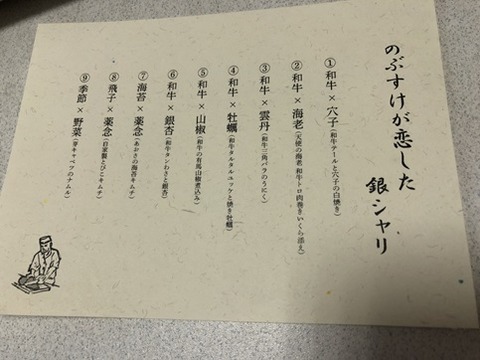 のぶすけが恋した
銀シャリ
① 和牛 × 穴子 (和牛テールと穴子の白焼き)
② 和牛 × 海老 (天使の海老 和牛トロ肉巻きいくら添え)
③ 和牛 × 雲丹 (和牛三角バラのうにく)
④ 和牛 × 牡蠣 (和牛タルタルユッケと焼き牡蠣)
⑤ 和牛 × 山椒 (和牛の有馬山椒煮込み)
⑥ 和牛 × 銀杏 (和牛タンわさと銀杏)
⑦ 海苔 × 薬念 (あおさの海苔キムチ)
⑧ 飛子 × 薬念 (自家製とびこキムチ)
⑨ 季節 × 野菜 (芽キャベツのナムル)